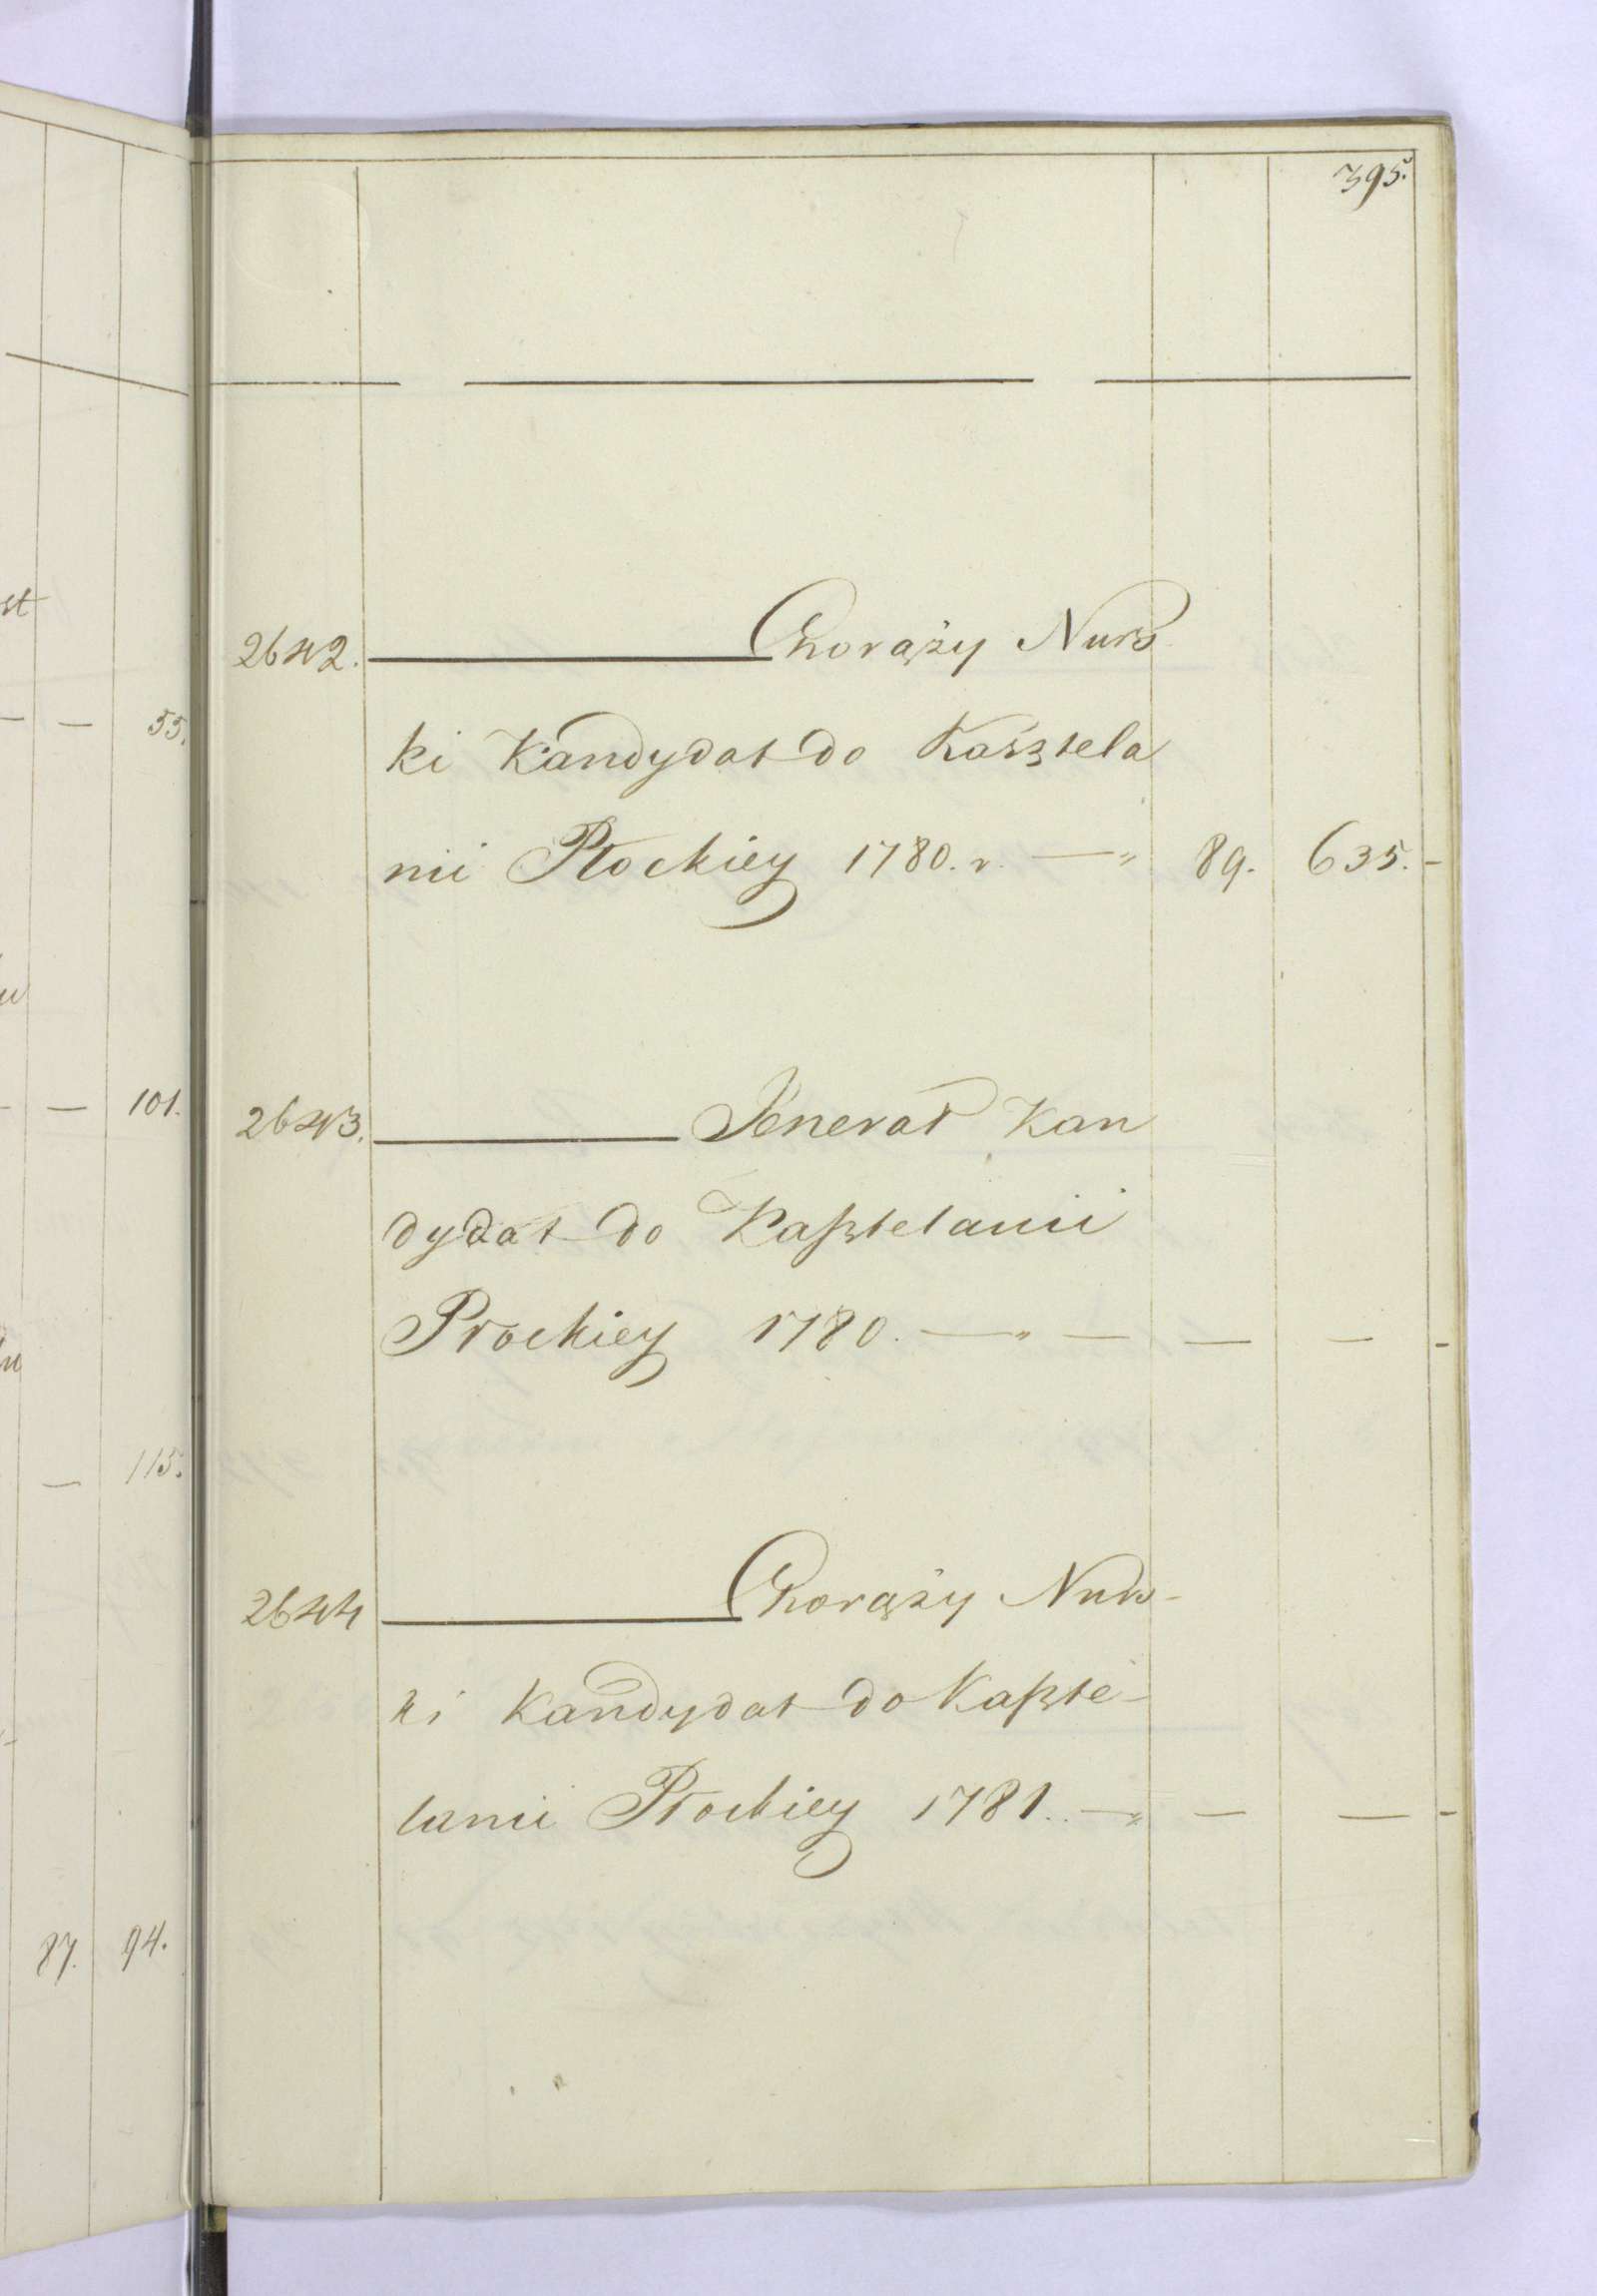 395.
2642. Chorąży Nurs
ki Kandydat do Kasztela
nii Płockiey 1780. r. — " 89. 635. -
2643. Jenerał Kan
dydat do Kasztelanii
Płockiey 1780. — " — — — -
2644 Chorąży Nurs-
ki Kandydat do Kaszte-
lanii Płockiey 1781. — " — — -
st
— — 55.
— — 101.
— 115.
87. 94.